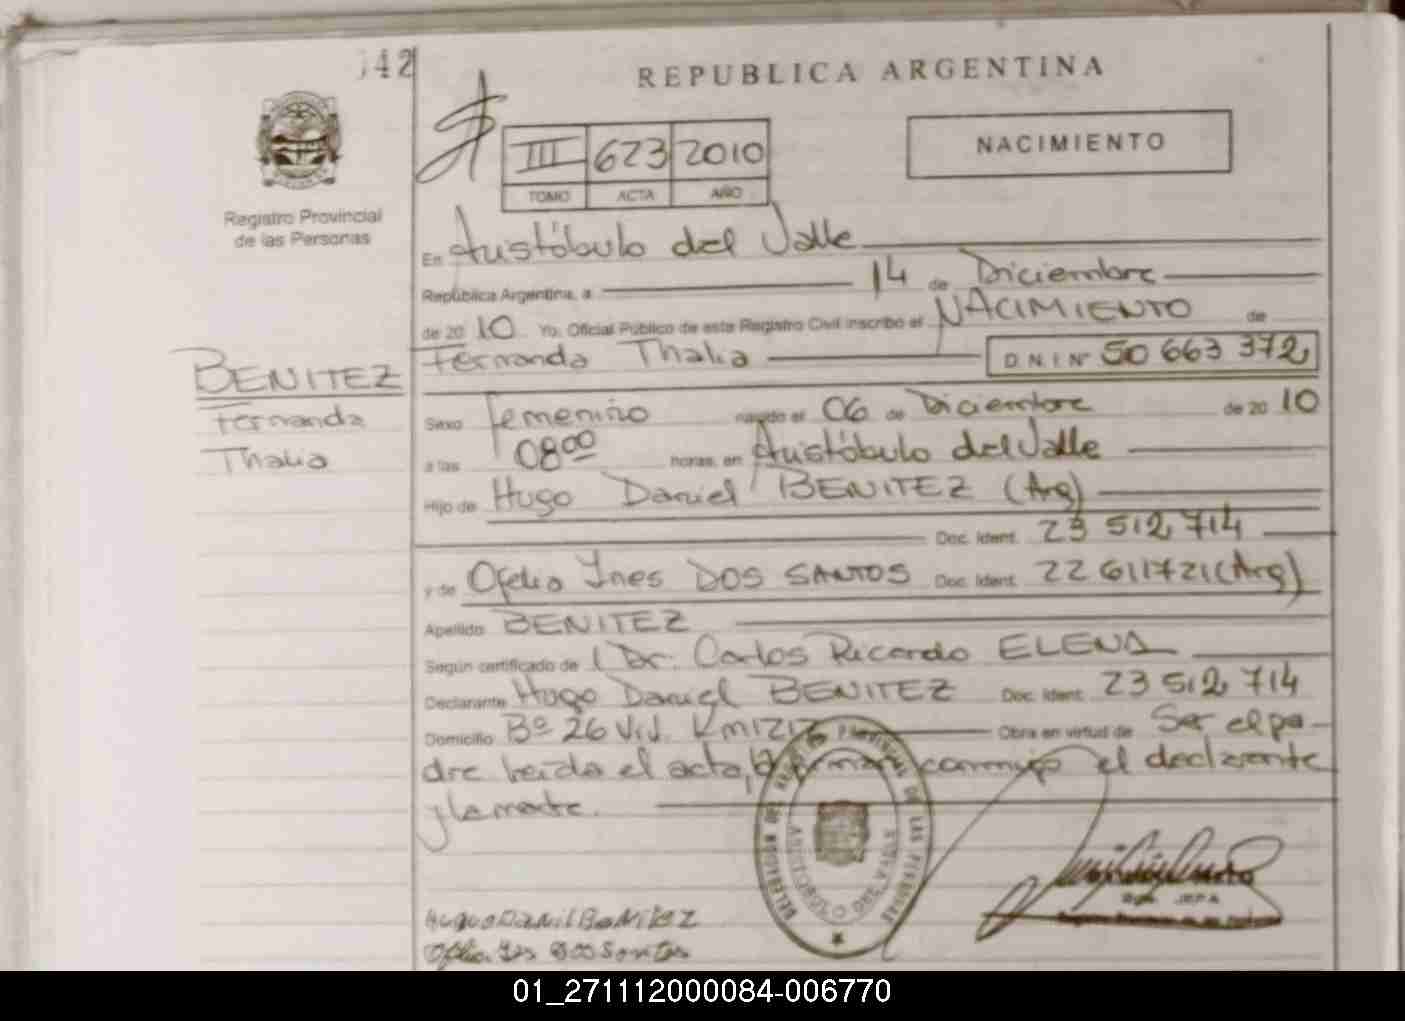 142
REPUBLICA ARGENTINA
NACIMIENTO
III 623 2010
TOMO ACTA AÑO
Registro Provincial
de las Personas
En Aristóbulo del Valle
República Argentina, a 14 de Diciembre
de 2010 Yo, Oficial Público de este Registro Civil inscribo el NACIMIENTO de
Fernanda Thalia D.N.I Nº 50 663 372
BENITEZ
Fernanda
Thalia
Sexo femenino nacido el 06 de Diciembre de 2010
a las 08 00 horas, en Aristóbulo del Valle
Hijo de Hugo Daniel BENITEZ (Arg)
Doc. Ident. 23 512 714
y de Ofelia Ines DOS SANTOS Doc. Ident. 22 611721 (Arg)
Apellido BENITEZ
Según certificado de Dr. Carlos Ricardo ELENA
Declarante Hugo Daniel BENITEZ Doc. Ident. 23 512 714
Domicilio Bº 26 Viv. Km1212 Obra en virtud de Ser el pa-
dre leida el acta, la firman conmigo el declarante
y la madre.
DELEGACION DEL REGISTRO PROVINCIAL DE LAS PERSONAS
ARISTOBULO DEL VALLE
Hugo Danil BeNitez
Ofelia Ines Dos Santos
01_271112000084-006770